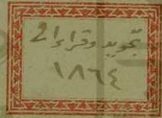 تجويد وقراءات
١٨٦٤